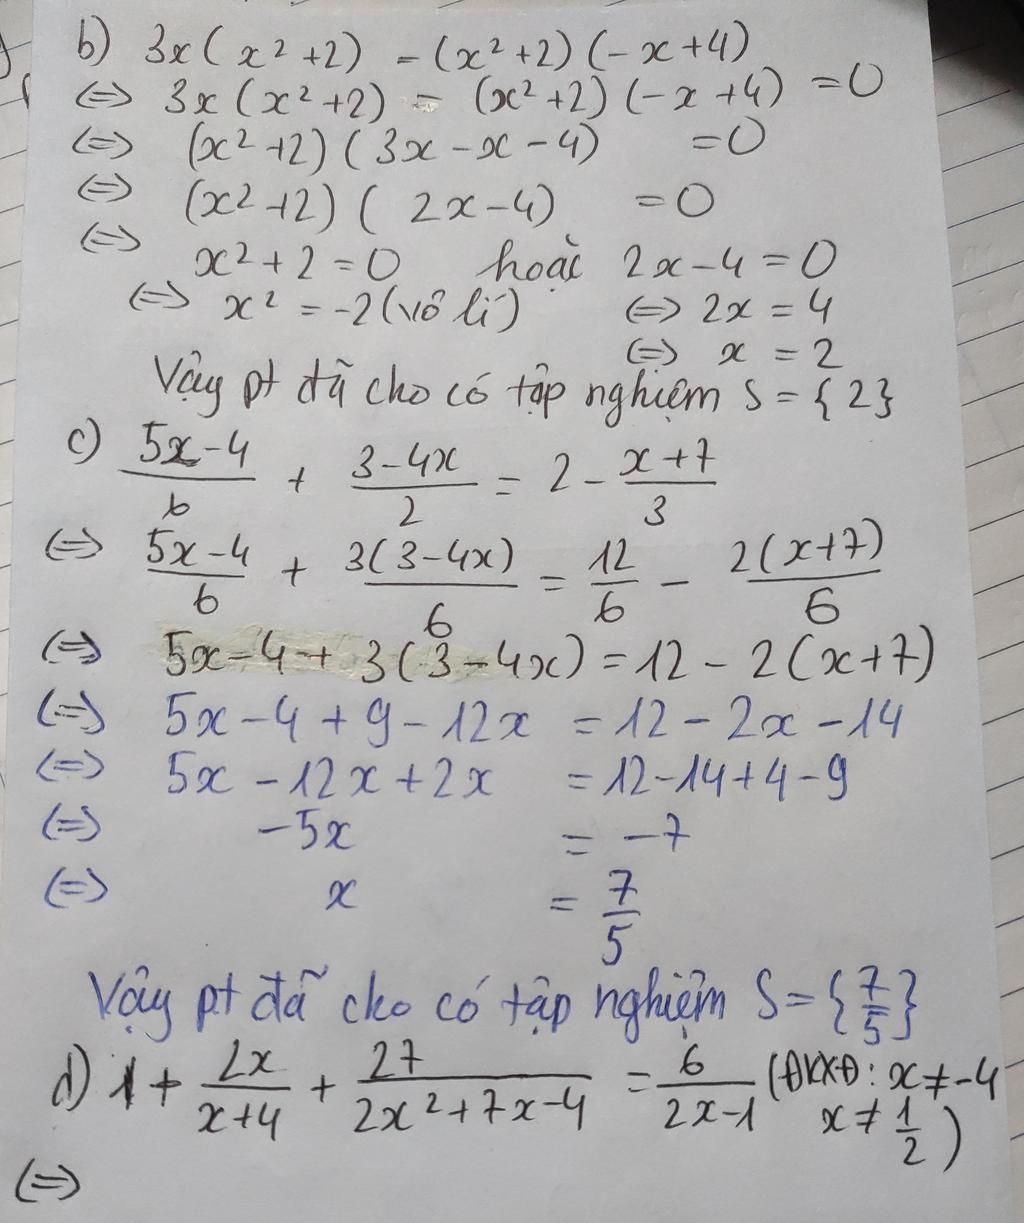 b) 3x(x²+2) - (x²+2)(-x+4)
⇔ 3x(x²+2) - (x²+2)(-x+4) = 0
⇔ (x²+2)(3x-x-4) = 0
⇔ (x²+2)( 2x-4) = 0
⇔ x²+2=0 hoặc 2x-4=0
⇔ x² = -2 (vô lí) ⇔ 2x = 4
⇔ x = 2
Vậy pt đã cho có tập nghiệm S = {2}
c) (5x-4)/6 + (3-4x)/2 = 2 - (x+7)/3
⇔ (5x-4)/6 + 3(3-4x)/6 = 12/6 - 2(x+7)/6
⇔ 5x-4+ 3(3-4x) = 12 - 2(x+7)
⇔ 5x-4+9-12x = 12-2x-14
⇔ 5x-12x+2x = 12-14+4-9
⇔ -5x = -7
⇔ x = 7/5
Vậy pt đã cho có tập nghiệm S={7/5}
d) 1 + 2x/(x+4) + 27/(2x²+7x-4) = 6/(2x-1) (ĐKXĐ: x≠-4
x≠1/2)
⇔